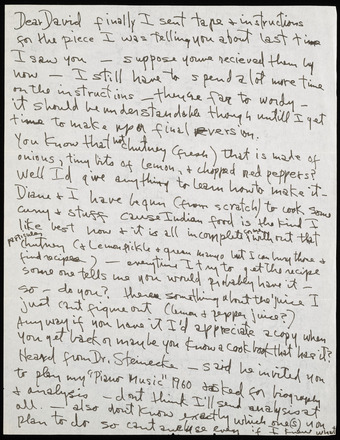 Dear David finally I sent tape + instructions
for the piece I was telling you about last time
I saw you — suppose youve recieved them by
now — I still have to spend a lot more time
on the instructions — they're far to wordy —
it should be understandable though untill I get
time to make up a final version.
You know that hot chutney (fresh) that is made of
onions, tiny bits of lemon, + chopped red peppers?
Well I'd give anything to learn how to make it —
Diane + I have begun (from scratch) to cook some
curry + stuff cause Indian food is the kind I
like best now + it is all incomplete without that
particular chutney (+ Lemon pickle + green mango but I can buy those +
find recipes) — everytime I try to get the recipe
some one tells me you would probably have it —
so — do you? theres something about the juice I
just cant figure out (lemon + pepper juice?)
Anyway if you have it I'd appreciate a copy when
you get back or maybe you know a cook book that has it?
Heard from Dr. Steinecke — said he invited you
to play my "Piano Music" 1960 asked for biography
+ analysis — dont think I'll send analysis at
all. — also dont know exactly which one(s) you
plan to do so cant analyse even if I knew what